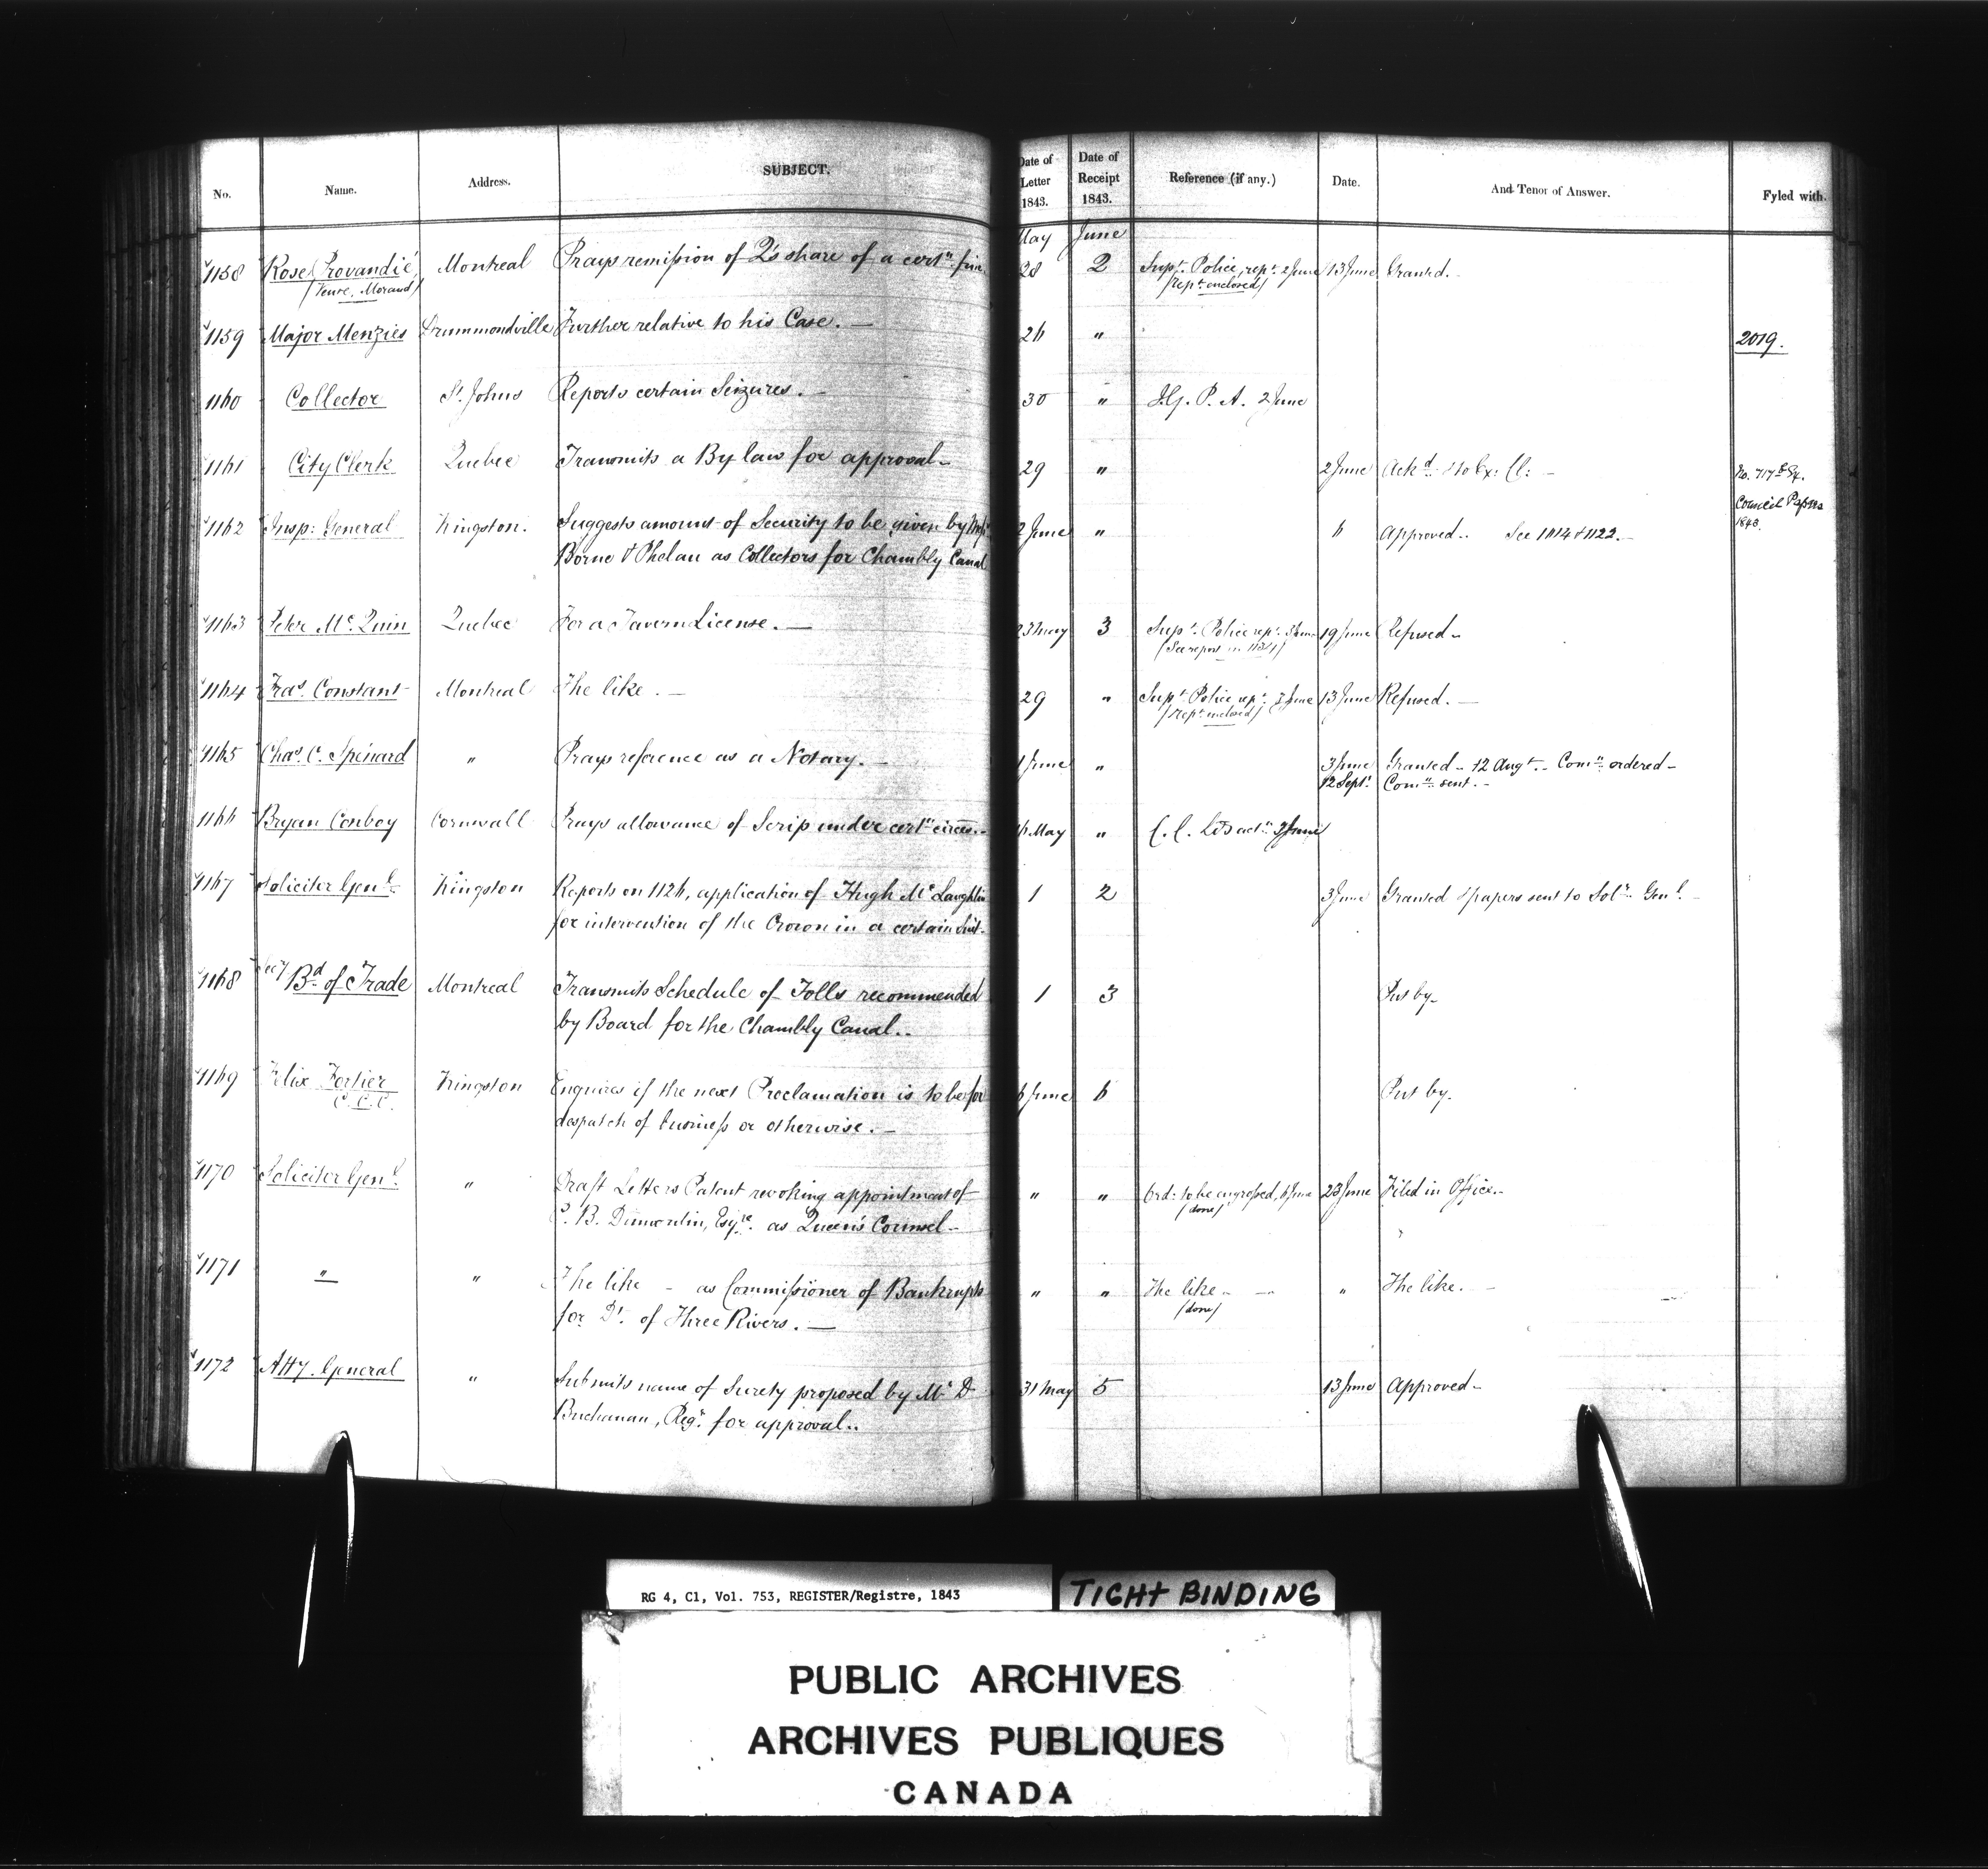 No. Name. Address. SUBJECT. Date of Letter 1843. Date of Receipt 1843. Reference (if any.) Date. And Tenor of Answer. Fyled with.
May June
1158 Rose Provandié Montreal Prays remission of Q's share of a certn. fine 28 2 Supt. Police, rept. 2 June 13 June Granted.
(Veuve, Morand) (rept. enclosed)
1159 Major Menzies Drummondville Further relative to his Case. — 26 " 2019.
1160 Collector St. Johns Reports certain Seizures. — 30 " I.G. P. A. 2 June
1161 City Clerk Quebec Transmits a By law for approval — 29 " 2 June Ackd. & to Ex: Cl: — No. 717 Ex.
Council Papers
1843.
1162 Insp: General Kingston. Suggests amount of Security to be given by 2 June " " Approved.. See 1114 & 1122. —
Borne & Phelan as Collectors for Chambly Canal
1163 Peter Mc. Quin Quebec For a Tavern License. — 23 May 3 Supt. Police rept. 3 June 19 June Refused —
(See report in
1164 Fras. Constant Montreal The like. — 29 " Supt. Police rept. 3 June 13 June Refused. —
(rept. enclosed)
1165 Chas. C. Spénard " Prays reference as a Notary. — 1 June " 3 June Granted — 12 Augt. — Comn. ordered —
12 Sept. Comn. sent. —
1166 Bryan Conboy Cornwall Prays allowance of Scrip under certn. circes. — 16 May " C. C. Lds actn. 3 June
1167 Solicitor Genl. Kingston Reports on 1126, application of Hugh Mc Laughlin 1 2 3 June Granted & papers sent to Solr. Genl. —
for intervention of the Crown in a certain Suit.
1168 Secy Bd. of Trade Montreal Transmits Schedule of Tolls recommended 1 3 Put by —
by Board for the Chambly Canal..
1169 Felix Fortier Kingston Enquires if the next Proclamation is to be for 6 June 6 Put by.
C. C. C. despatch of business or otherwise. —
1170 Solicitor Genl. " Draft Letters Patent revoking appointment of " " Ord: to be engrossed, 6 June 23 June Filed in Office..
(done)
P. B. Dumoulin, Esqre. as Queen's Counsel —
1171 " " The like — as Commissioner of Bankrupts " " The like — " The like. —
(done)
for Dt. of Three Rivers. —
1172 Atty. General " Submits name of Surety proposed by Mr. D 31 May 5 13 June Approved —
Buchanan, Regr. for approval..
RG 4, C1, Vol. 753, REGISTER/Registre, 1843
TIGHT BINDING
PUBLIC ARCHIVES
ARCHIVES PUBLIQUES
CANADA